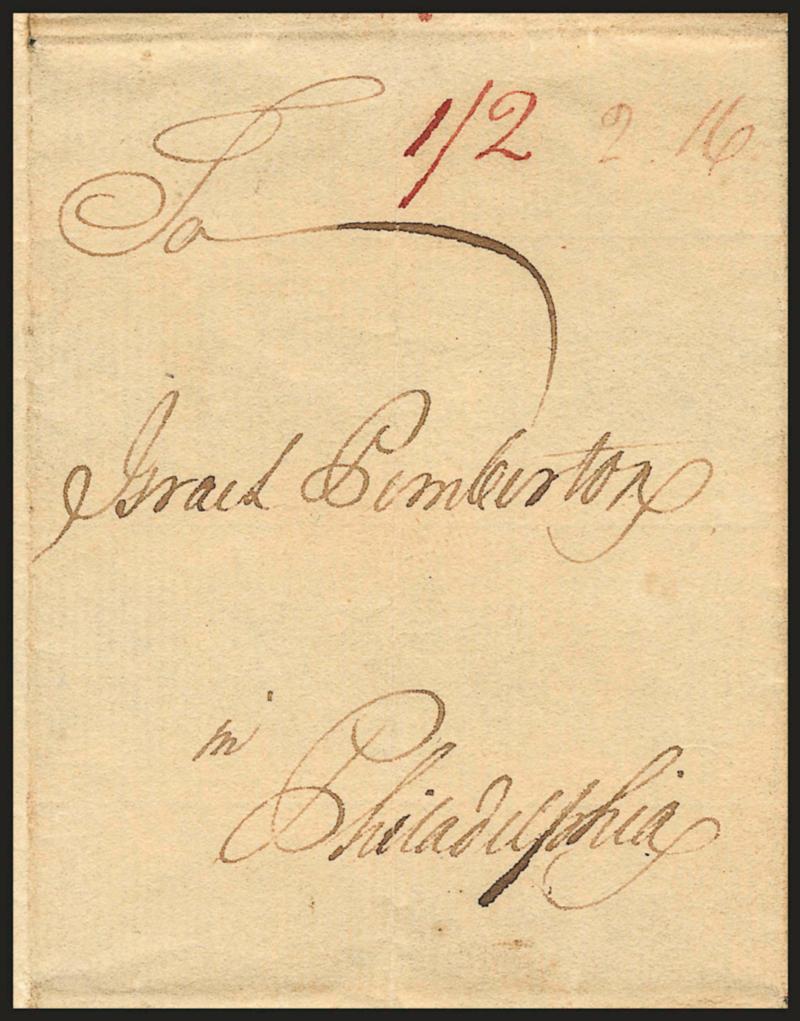 1/2 2.16
To
Israel Pemberton
in
Philadelphia